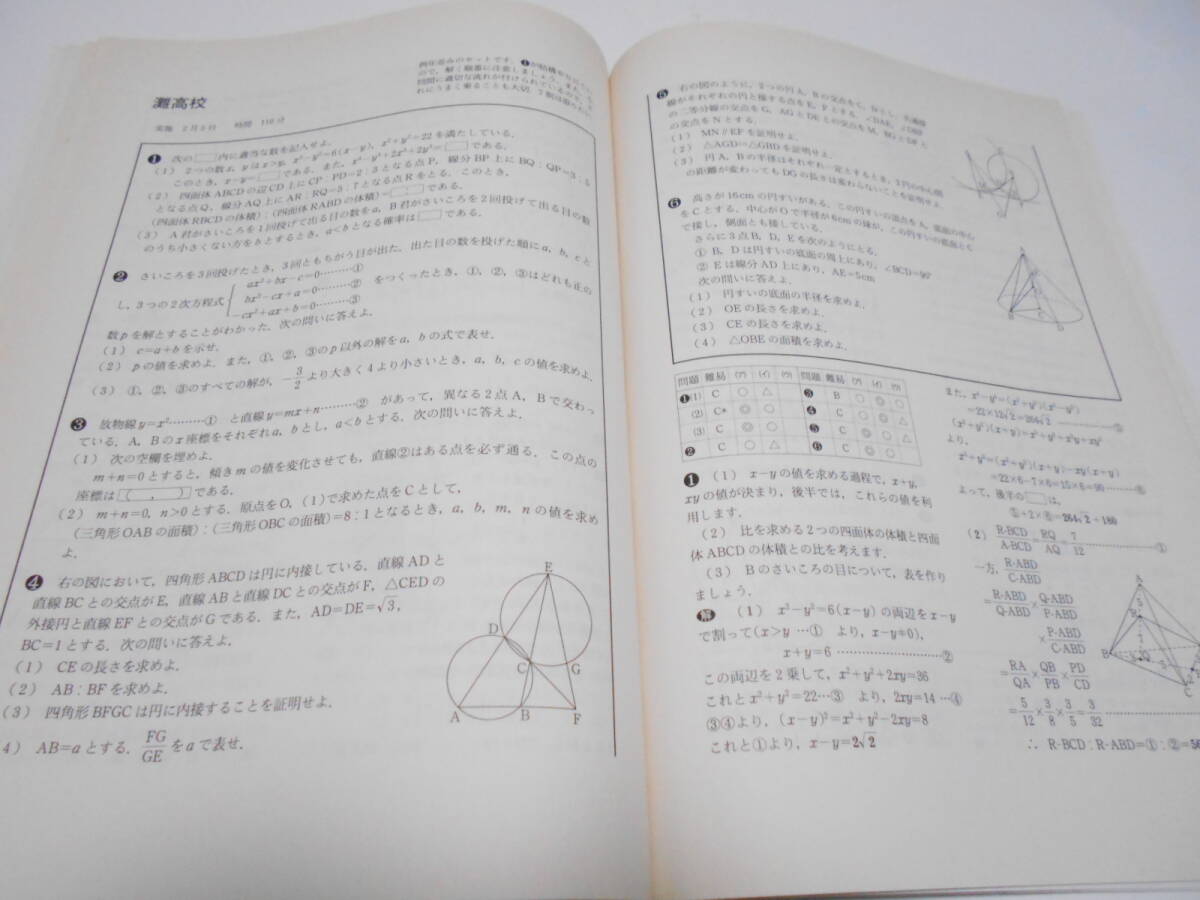 灘高校
実施 2月3日 時間 110分
例年並みのセットです.
❶ 次の□内に適当な数を記入せよ.
(1) 2つの数x, yはx>y, x²−y²=6(x−y), x²+y²=22を満たしている.
このとき, x−y=□である. また,
(2) 四面体ABCDの辺CD上にCP:PD=2:3となる点P, 線分BP上にBQ:QP=3:5
となる点Q, 線分AQ上にAR:RQ=5:7となる点Rをとる. このとき,
(四面体RBCDの体積):(四面体RABDの体積)=□である.
(3) A君がさいころを1回投げて出る目の数をa, B君がさいころを2回投げて出る目の数
のうち小さくない方をbとするとき, a<bとなる確率は□である.
❷ さいころを3回投げたとき, 3回ともちがう目が出た. 出た目の数を投げた順にa, b, cと
し, 3つの2次方程式
ax²+bx−c=0………①
bx²−cx+a=0………②
−cx²+ax+b=0………③
をつくったとき, ①, ②, ③はどれも正の
数pを解とすることがわかった. 次の問いに答えよ.
(1) c=a+bを示せ.
(2) pの値を求めよ. また, ①, ②, ③のp以外の解をa, bの式で表せ.
(3) ①, ②, ③のすべての解が, −3/2より大きく4より小さいとき, a, b, cの値を求めよ.
❸ 放物線y=x²………① と直線y=mx+n………② があって, 異なる2点A, Bで交わっ
ている. A, Bのx座標をそれぞれa, bとし, a<bとする. 次の問いに答えよ.
(1) 次の空欄を埋めよ.
m+n=0とすると, 傾きmの値を変化させても, 直線②はある点を必ず通る. この点の
座標は( , )である.
(2) m+n=0, n>0とする. 原点をO, (1)で求めた点をCとして,
(三角形OABの面積):(三角形OBCの面積)=8:1となるとき, a, b, m, nの値を求め
よ.
❹ 右の図において, 四角形ABCDは円に内接している. 直線ADと
直線BCとの交点がE, 直線ABと直線DCとの交点がF, △CEDの
外接円と直線EFとの交点がGである. また, AD=DE=√3,
BC=1とする. 次の問いに答えよ.
(1) CEの長さを求めよ.
(2) AB:BFを求めよ.
(3) 四角形BFGCは円に内接することを証明せよ.
(4) AB=aとする. FG/GEをaで表せ.
E
D
C
G
A
B
F
❺ 右の図のように, 2つの円A, Bの交点をC, Dとし,
線がそれぞれの円と接する点をE, Fとする. ∠DAE, ∠DBF
の二等分線の交点をG, AGとDEとの交点をM, BGとDFと
の交点をNとする.
(1) MN∥EFを証明せよ.
(2) △AGD∽△GBDを証明せよ.
(3) 円A, Bの半径はそれぞれ一定とするとき, 2円の中心間
の距離が変わってもDGの長さは変わらないことを証明せよ.
❻ 高さが16cmの円すいがある. この円すいの頂点をA, 底面の中心
をCとする. 中心がOで半径が6cmの球が, この円すいの底面とC
で接し, 側面とも接している.
さらに3点B, D, Eを次のようにとる.
① B, Dは円すいの底面の周上にあり, ∠BCD=90°
② Eは線分AD上にあり, AE=5cm
次の問いに答えよ.
(1) 円すいの底面の半径を求めよ.
(2) OEの長さを求めよ.
(3) CEの長さを求めよ.
(4) △OBEの面積を求めよ.
問題 難易 (ア) (イ) (ウ) 問題 難易 (ア) (イ) (ウ)
❶(1) C ○ △ ❸ B ○ ◎ ○
(2) C* ◎ ○ ❹ C ◎ ○ ○
(3) C ◎ ○ ❺ C ○ ◎ ○ △
❷ C ○ △ ❻ C ◎ ○ △
❶ (1) x−yの値を求める過程で, x+y,
xyの値が決まり, 後半では, これらの値を利
用します.
(2) 比を求める2つの四面体の体積と四面
体ABCDの体積との比を考えます.
(3) Bのさいころの目について, 表を作り
ましょう.
解 (1) x²−y²=6(x−y)の両辺をx−y
で割って(x>y …① より, x−y≠0),
x+y=6 ………………②
この両辺を2乗して, x²+y²+2xy=36
これとx²+y²=22…③ より, 2xy=14 …④
③④より, (x−y)²=x²+y²−2xy=8
これと①より, x−y=2√2
また, x⁴−y⁴=(x²+y²)(x²−y²)
=22×12√2=264√2 ………⑤
(x²+y²)(x+y)=x³+y³+x²y+xy²
より,
x³+y³=(x²+y²)(x+y)−xy(x+y)
=22×6−7×6=15×6=90 ………⑥
よって, 後半の□は,
⑤+2×⑥=264√2+180
(2) R-BCD/A-BCD=RQ/AQ=7/12 ………①
一方, R-ABD/C-ABD
=R-ABD/Q-ABD×Q-ABD/P-ABD
×P-ABD/C-ABD
=RA/QA×QB/PB×PD/CD
=5/12×3/8×3/5=3/32 ………
∴ R-BCD:R-ABD=①:②=56